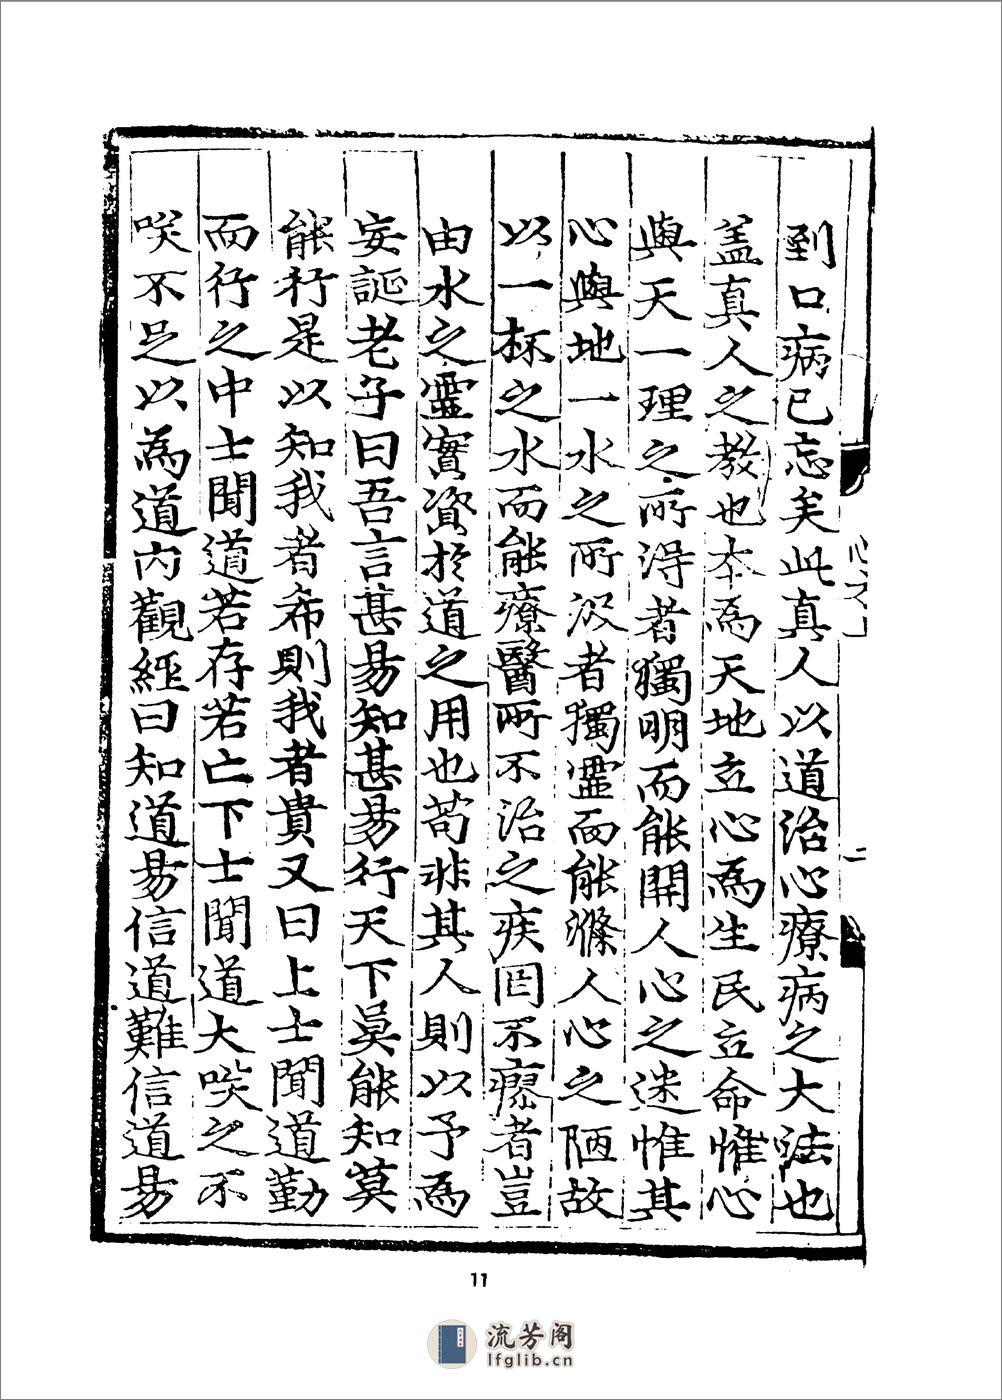 到口病已忘矣此真人以道治心療病之大法也
盖真人之教也本為天地立心為生民立命惟心
與天一理之所得者獨明而能開人心之迷惟其
心與地一水之所汲者獨靈而能滌人心之陋故
以一杯之水而能療醫所不治之疾罔不瘳者豈
由水之靈實資於道之用也苟非其人則以予為
妄誕老子曰吾言甚易知甚易行天下莫能知莫
能行是以知我者希則我者貴又曰上士聞道勤
而行之中士聞道若存若亡下士聞道大咲之不
咲不足以為道內觀經曰知道易信道難信道易
11
流芳阁
lfglib.cn